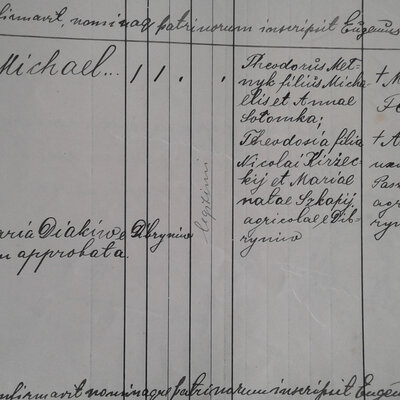 firmavit, nominaq patrinorum inscripsit Eugenius
Michael... 1 1 . .
Theodorus Met-
nyk filius Micha-
elis et Annae
Sołomka;
Theodosia filia
Nicolai Kirzec-
kij et Mariae
natae Szkapij,
agricolae e Dib-
ryniw
legitimi
aria Diakiw e Dibryniw
m approbata.
nfirmavit nominaque patrinorum inscripsit Eugen